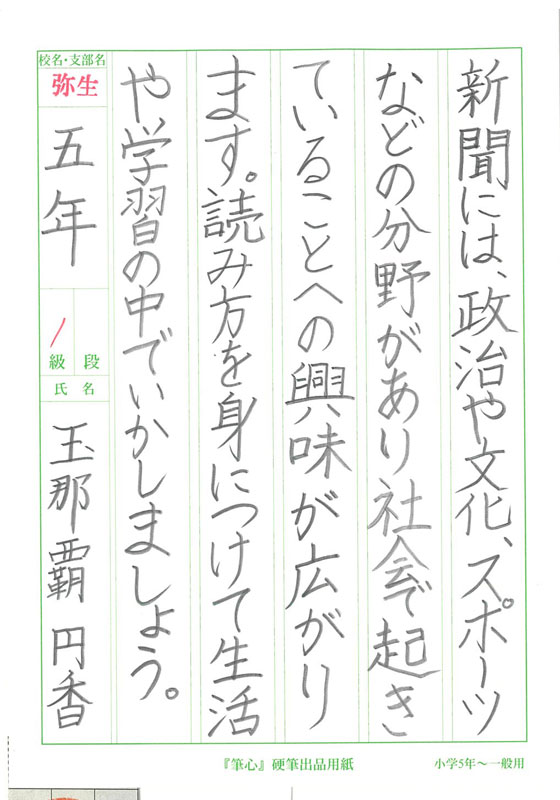 新聞には、政治や文化、スポーツ
などの分野があり社会で起き
ていることへの興味が広がり
ます。読み方を身につけて生活
や、学習の中でいかしましょう。
校名・支部名
弥生
五年
/
級 段
氏 名
玉那覇 円香
『筆心』硬筆出品用紙
小学5年〜一般用